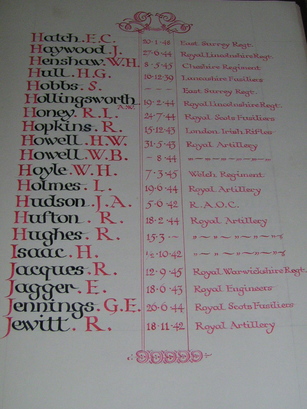 Hatch. E.C. 20-1-44 East Surrey Regt.
Haywood. J. 27-6-44 Royal Lincolnshire Regt.
Henshaw. W.H. 8-5-45 Cheshire Regiment
Hull. H.G. 10-12-39 Lancashire Fusiliers
Hobbs. S. - - - East Surrey Regt.
Hollingsworth A.W. 19-2-44 Royal Lincolnshire Regt.
Honey. R.L. 24-7-44 Royal Scots Fusiliers
Hopkins. R. 15-12-43 London Irish Rifles
Howell. H.W. 31-5-43 Royal Artillery
Howell. W.B. - 8-44 " ~ " ~ " ~ " ~ "
Hoyle. W.H. 7-3-45 Welch Regiment
Holmes. L. 19-6-44 Royal Artillery
Hudson. J.A. 5-6-42 R.A.O.C.
Hufton. R. 18-2-44 Royal Artillery
Hughes. R. 15-3-- " ~ " ~ " ~ " ~ "
Isaac. H. -10-42 " ~ " ~ " ~ " ~ "
Jacques. R. 12-9-45 Royal Warwickshire Regt.
Jagger. E. 18-6-43 Royal Engineers
Jennings. G.E. 26-6-44 Royal Scots Fusiliers
Jewitt. R. 18-11-42 Royal Artillery